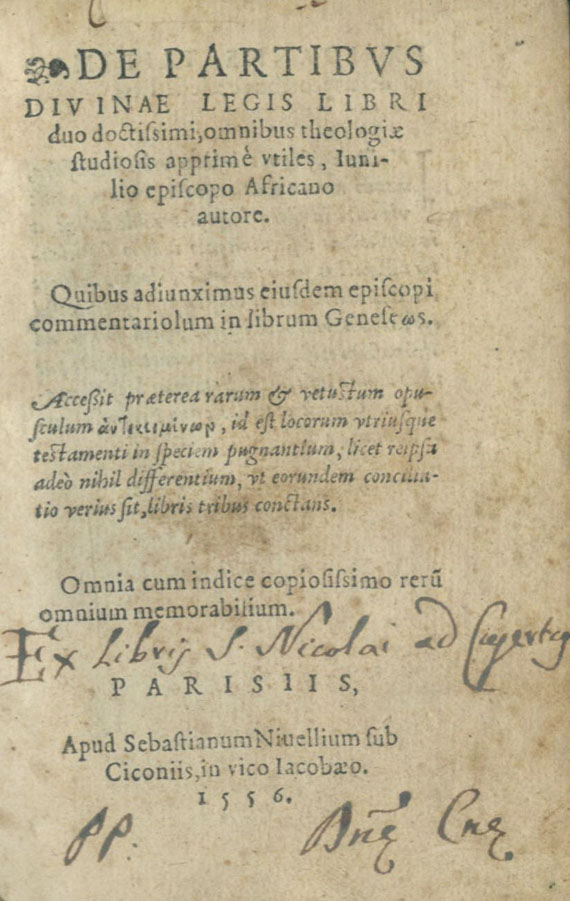 DE PARTIBVS
DIVINAE LEGIS LIBRI
duo doctiſsimi, omnibus theologiæ
ſtudioſis apprimè vtiles, Iuni-
lio epiſcopo Africano
autore.
Quibus adiunximus eiuſdem epiſcopi
commentariolum in librum Geneſεως.
Acceßit præterea rarum & vetuſtum opu-
ſculum ἀντικειμένωρ, id eſt locorum vtriuſque
teſtamenti in ſpeciem pugnantium, licet reipſa
adeò nihil differentium, vt eorundem concilia-
tio verius ſit, libris tribus conſtans.
Omnia cum indice copioſiſsimo rerū
omnium memorabilium.
Ex Libris S. Nicolai ad
PARISIIS,
Apud Sebaſtianum Niuellium ſub
Ciconiis, in vico Iacobæo.
1556.
PP.